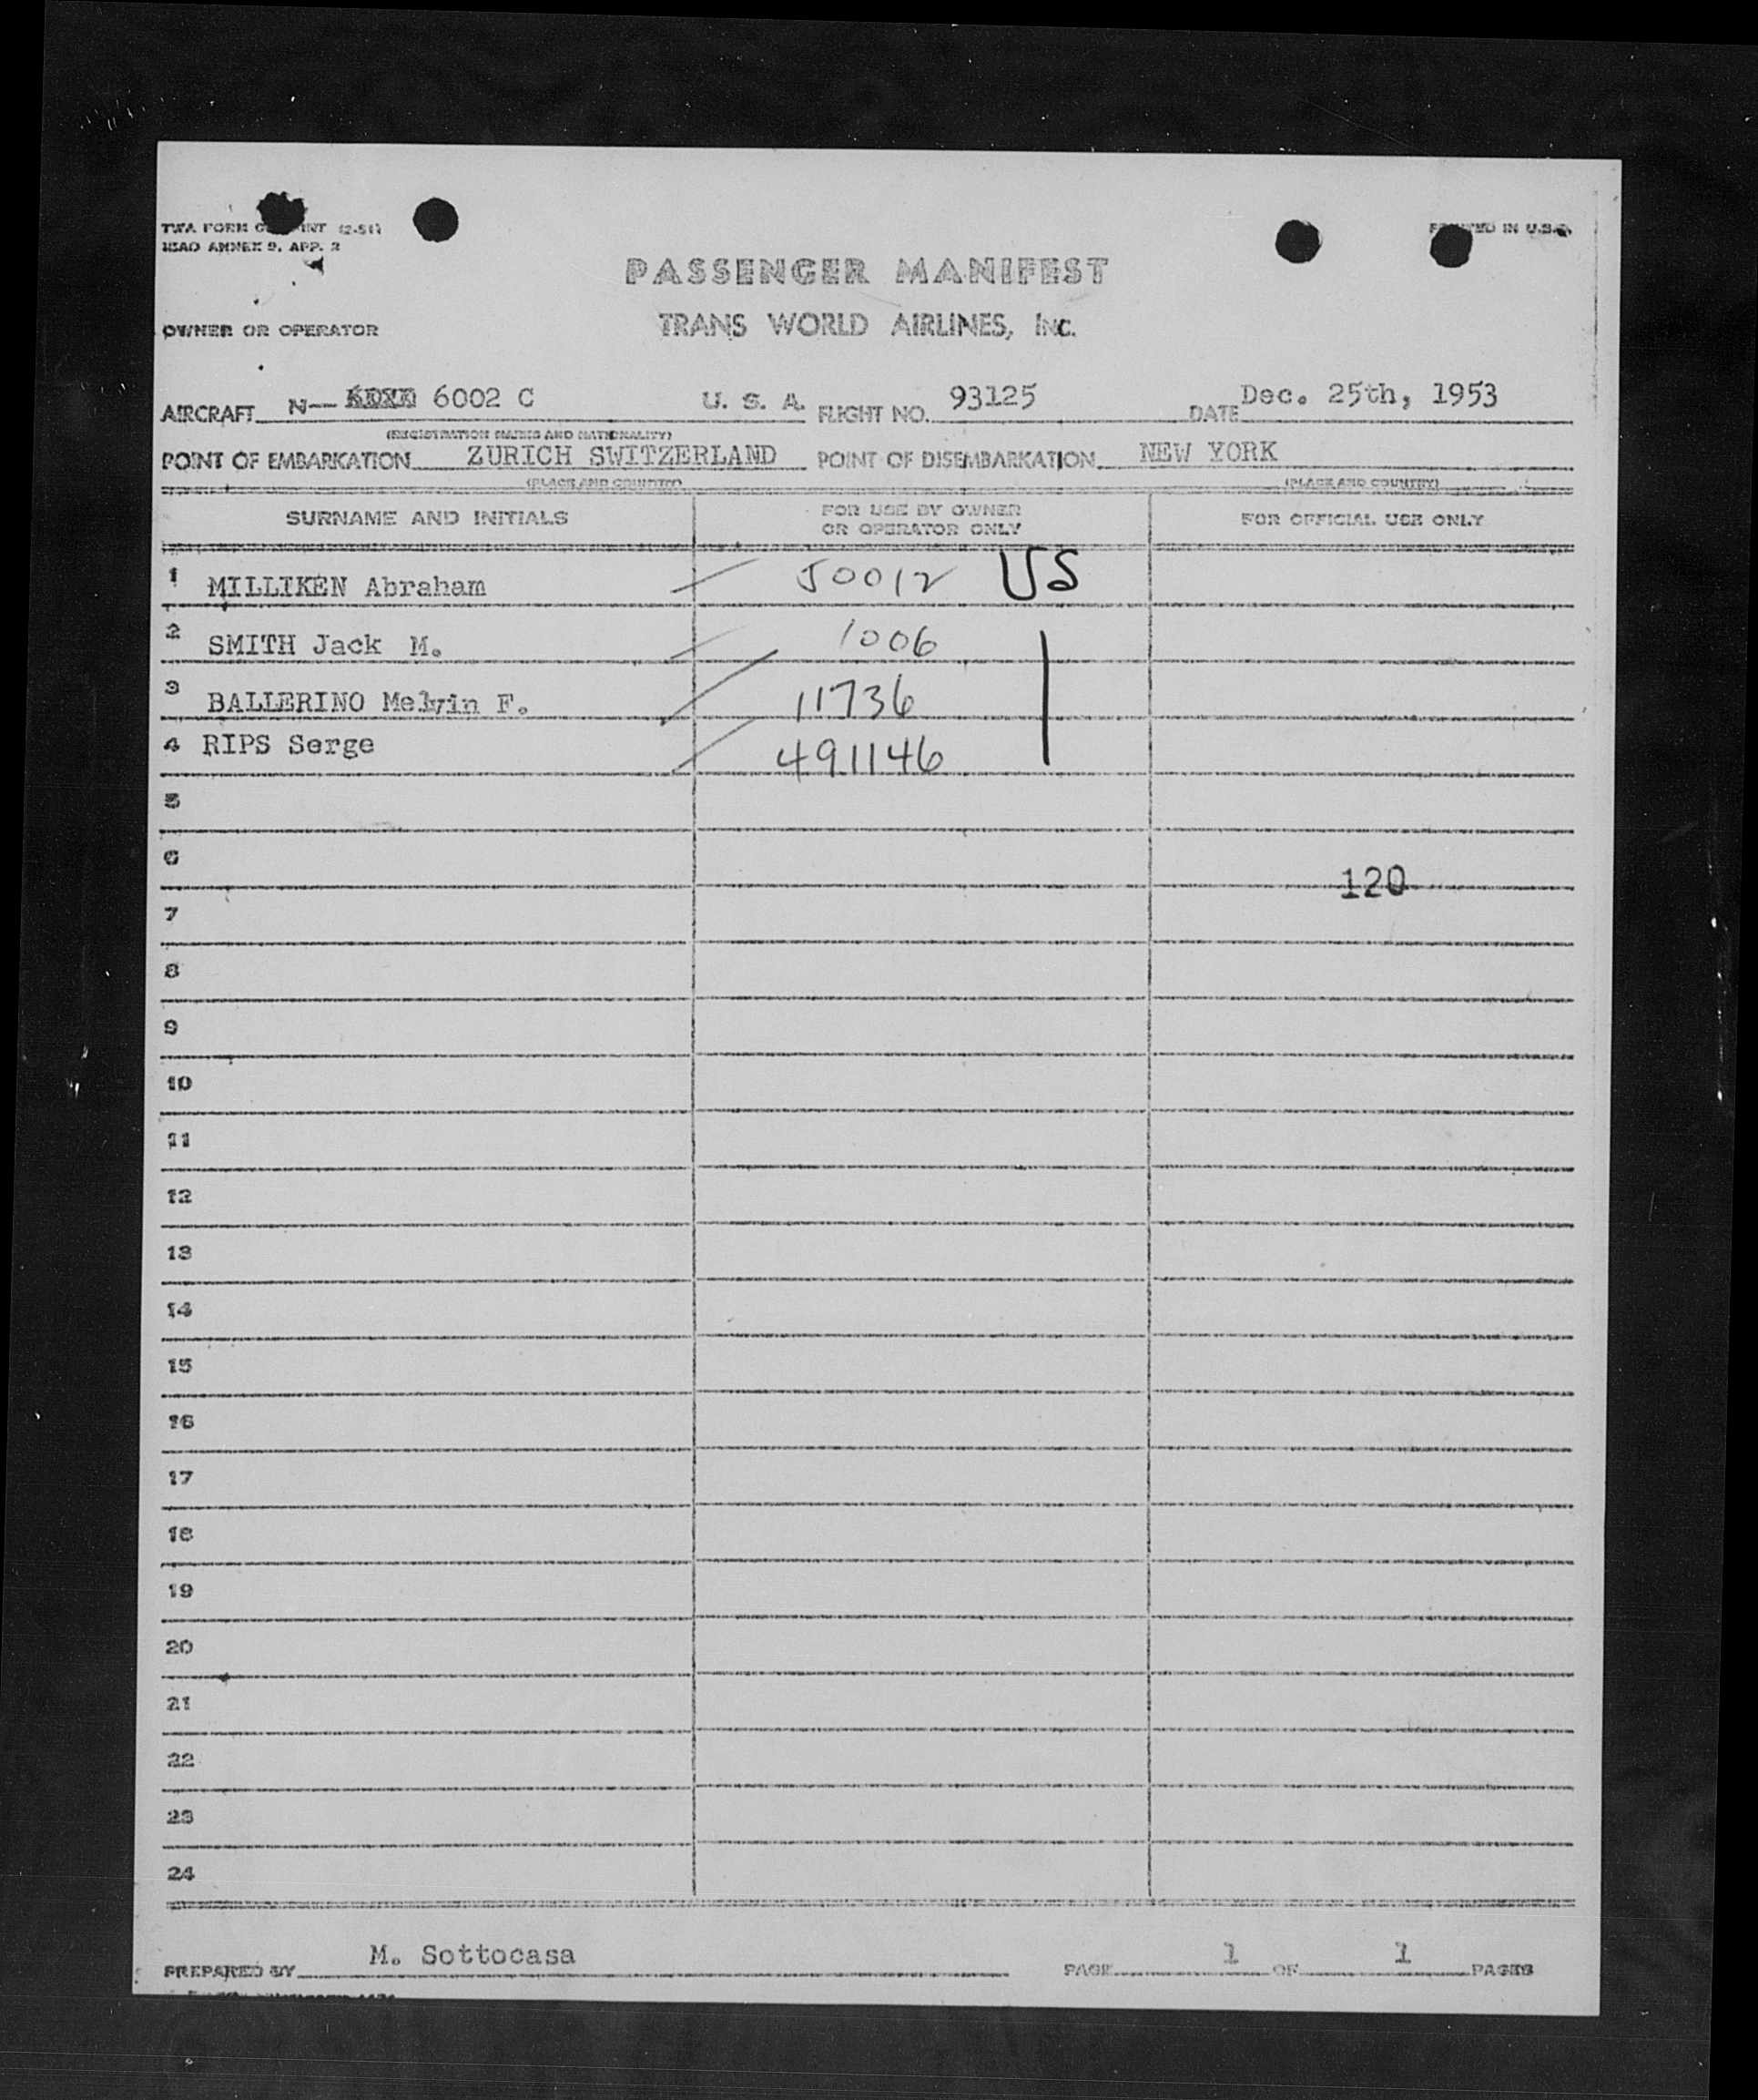 TWA FORM INT (2-51)
ICAO ANNEX 9, APP. 2
PRINTED IN U.S.A.
PASSENGER MANIFEST
OWNER OR OPERATOR TRANS WORLD AIRLINES, INC.
AIRCRAFT N— 6002 C U. S. A. FLIGHT NO. 93125 DATE Dec. 25th, 1953
(REGISTRATION MARKS AND NATIONALITY)
POINT OF EMBARKATION ZURICH SWITZERLAND POINT OF DISEMBARKATION NEW YORK
(PLACE AND COUNTRY) (PLACE AND COUNTRY)
SURNAME AND INITIALS FOR USE BY OWNER OR OPERATOR ONLY FOR OFFICIAL USE ONLY
1 MILLIKEN Abraham 50012 US
2 SMITH Jack M. 1006
3 BALLERINO Melvin F. 11736
4 RIPS Serge 491146
5
6 120
7
8
9
10
11
12
13
14
15
16
17
18
19
20
21
22
23
24
PREPARED BY M. Sottocasa PAGE 1 OF 1 PAGES